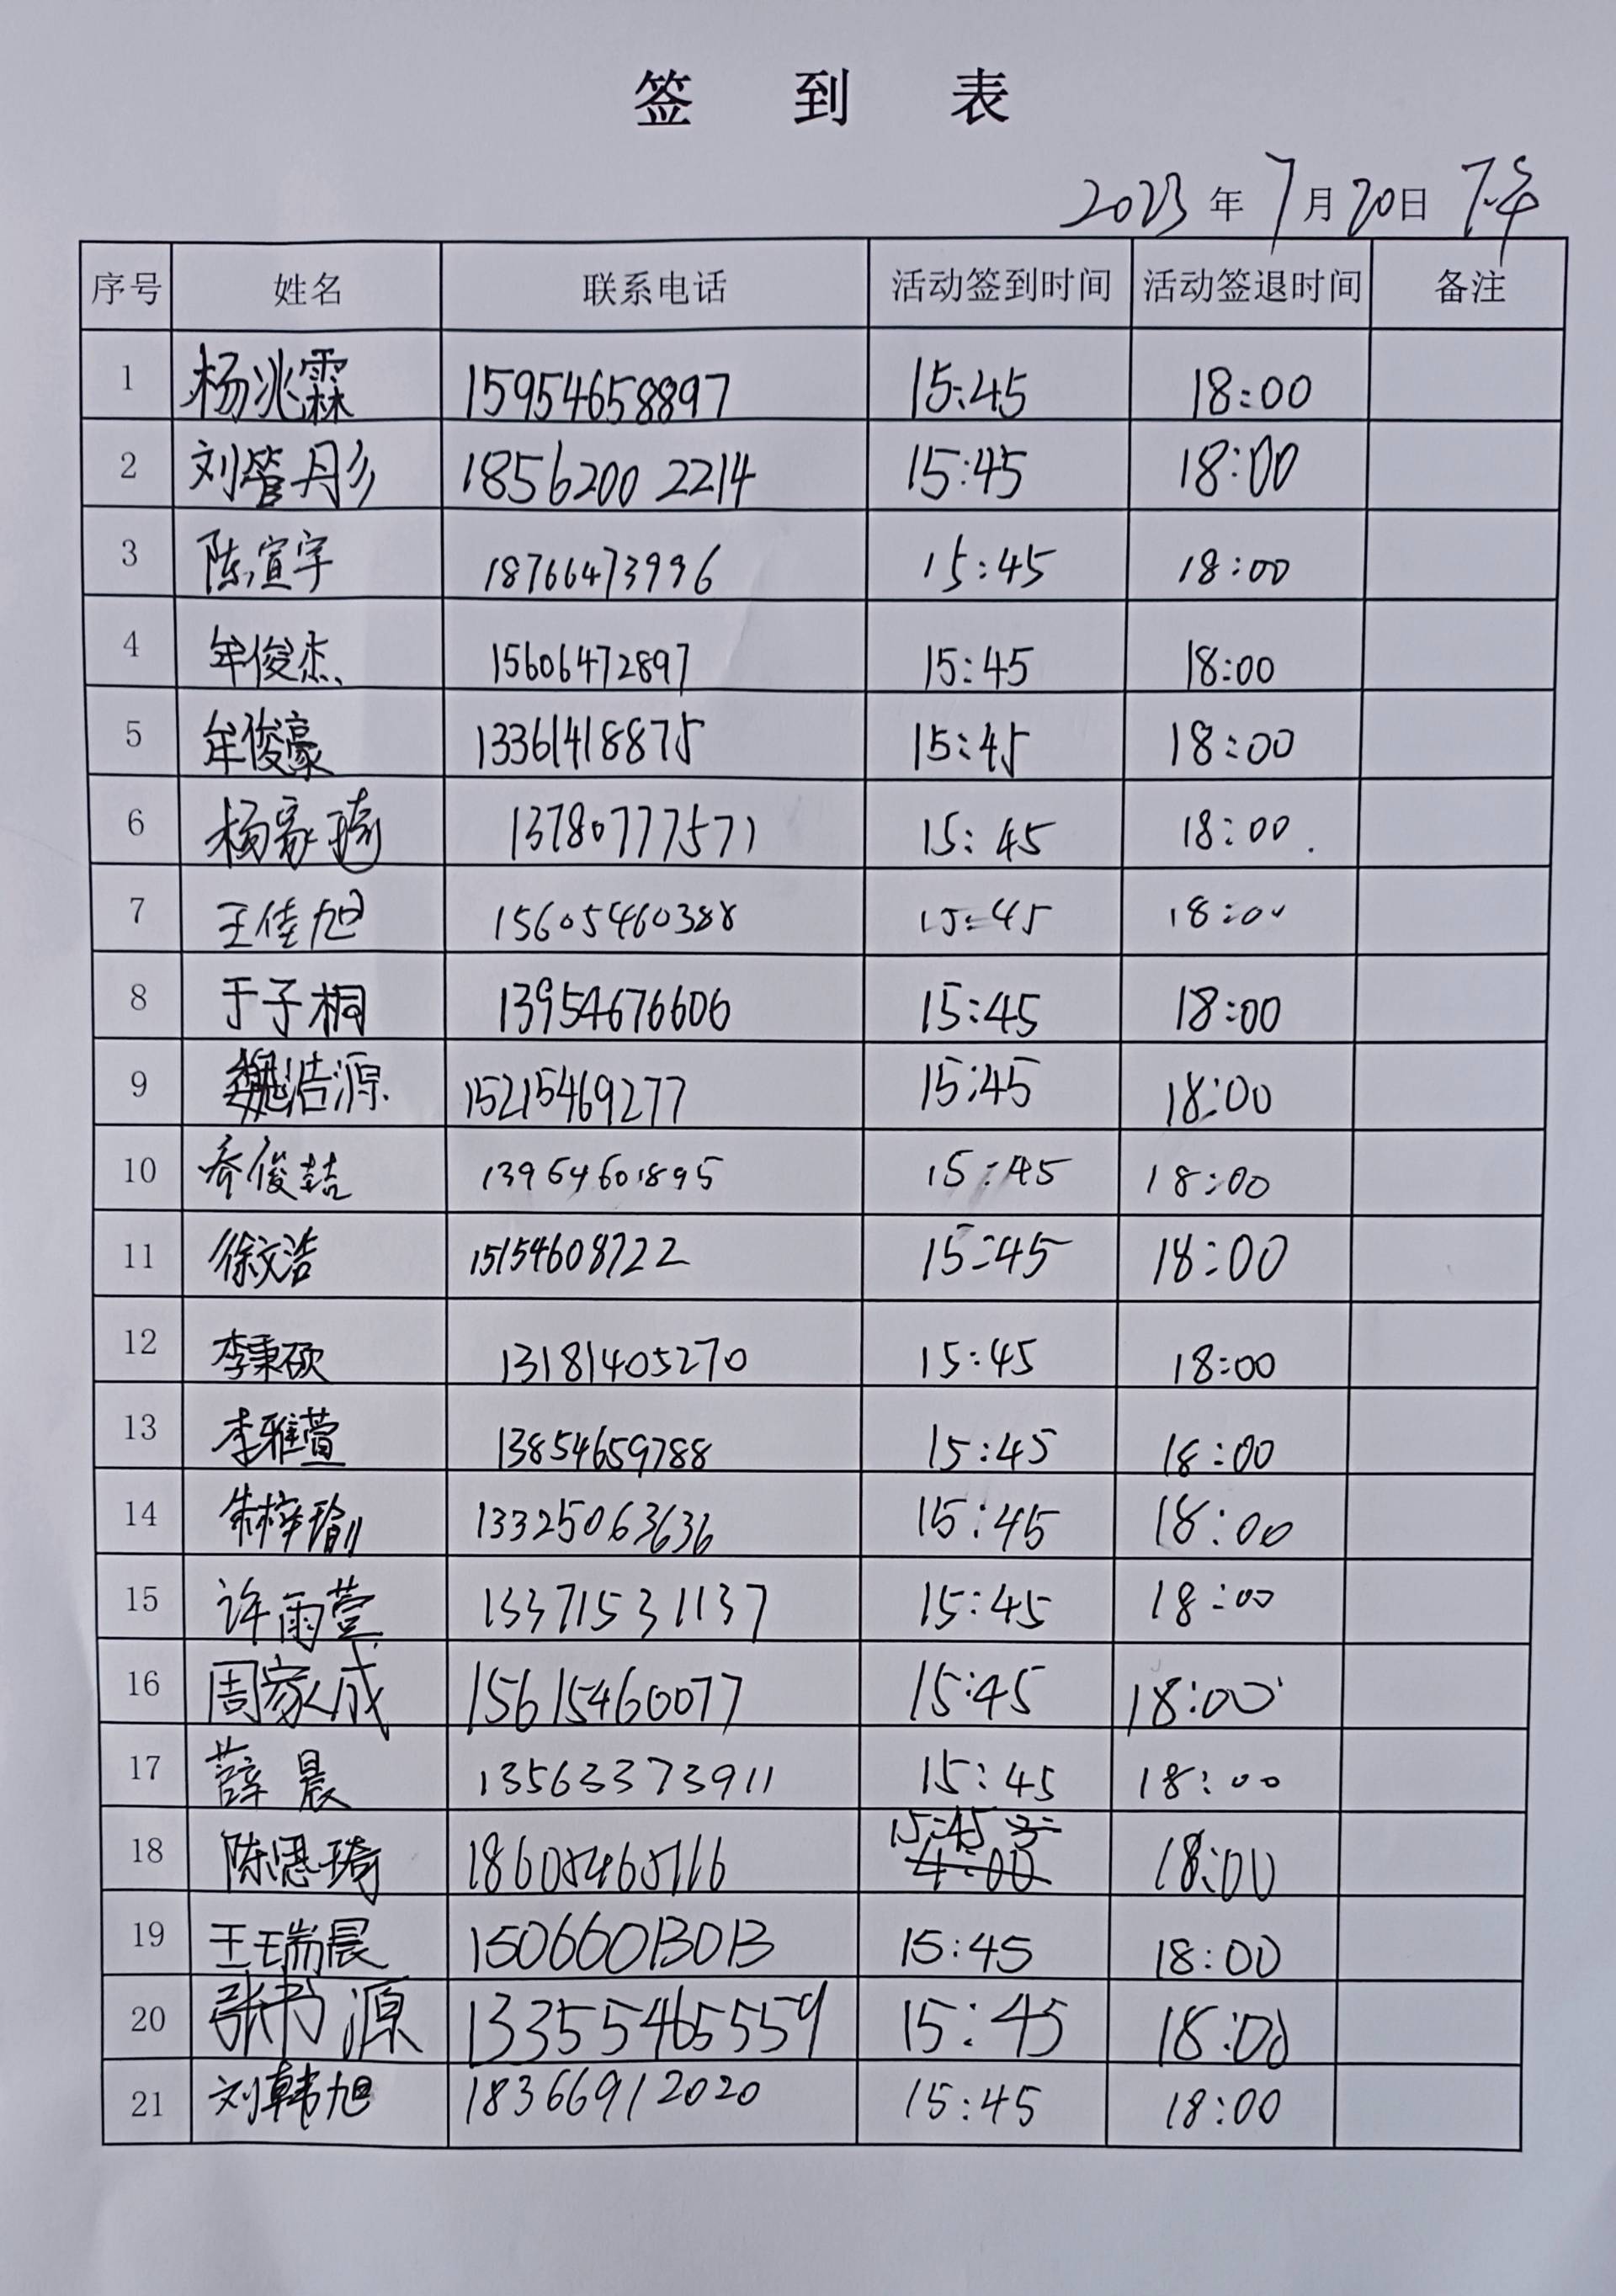 签 到 表
2023年7月20日 下午
序号 姓名 联系电话 活动签到时间 活动签退时间 备注
1 杨兆霖 15954658897 15:45 18:00
2 刘管彤 18562002214 15:45 18:00
3 陈宣宇 18766473996 15:45 18:00
4 牟俊杰 15606472897 15:45 18:00
5 牟俊豪 13361418875 15:45 18:00
6 杨家琦 13780777571 15:45 18:00.
7 王佳旭 15605460388 15:45 18:00
8 于子桐 13954676606 15:45 18:00
9 魏浩源 15215469277 15:45 18:00
10 乔俊喆 13964601895 15:45 18:00
11 徐文浩 15154608722 15:45 18:00
12 李秉硕 13181405270 15:45 18:00
13 李雅萱 13854659788 15:45 18:00
14 朱梓瑜 13325063636 15:45 18:00
15 许雨萱 13371531137 15:45 18:00
16 周家成 15615460077 15:45 18:00
17 薛晨 13563373911 15:45 18:00
18 陈思琦 18605465116 15:45 18:00
19 王瑞晨 15066013013 15:45 18:00
20 张书源 13355465559 15:45 18:00
21 刘韩旭 18366912020 15:45 18:00